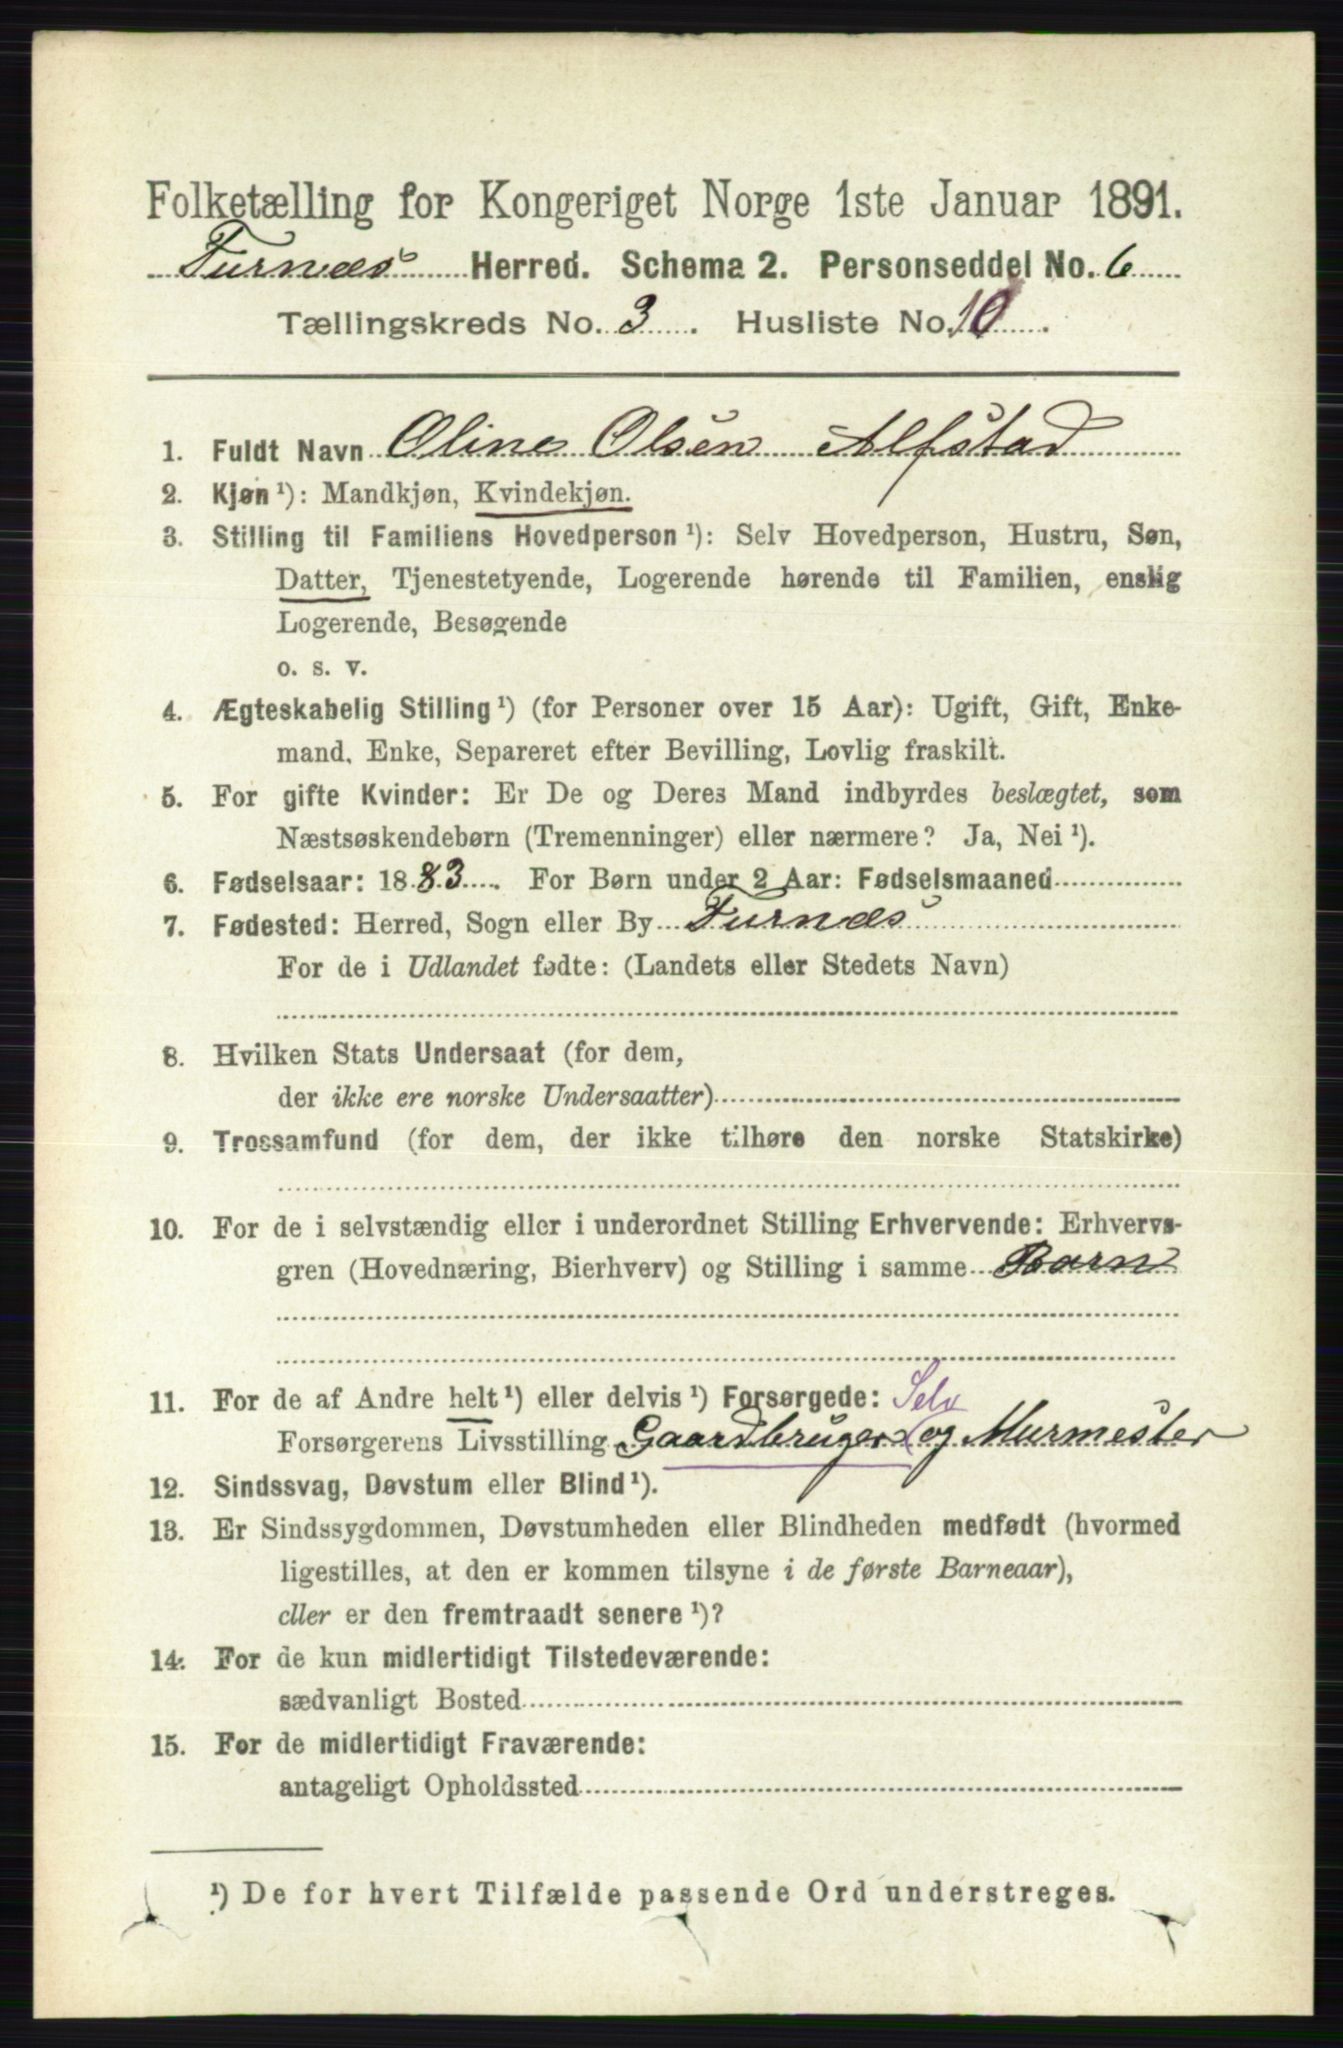 Folketælling for Kongeriget Norge 1ste Januar 1891.
Furnæs Herred. Schema 2. Personseddel No. 6
Tællingskreds No. 3. Husliste No. 10.
1. Fuldt Navn Oline Olsen Alfstad
2. Kjøn ¹): Mandkjøn, Kvindekjøn.
3. Stilling til Familiens Hovedperson ¹): Selv Hovedperson, Hustru, Søn,
Datter, Tjenestetyende, Logerende hørende til Familien, enslig
Logerende, Besøgende
o. s. v.
4. Ægteskabelig Stilling ¹) (for Personer over 15 Aar): Ugift, Gift, Enke-
mand, Enke, Separeret efter Bevilling, Lovlig fraskilt.
5. For gifte Kvinder: Er De og Deres Mand indbyrdes beslægtet, som
Næstsøskendebørn (Tremenninger) eller nærmere? Ja, Nei ¹).
6. Fødselsaar: 1883. For Børn under 2 Aar: Fødselsmaaned
7. Fødested: Herred, Sogn eller By Furnæs
For de i Udlandet fødte: (Landets eller Stedets Navn)
8. Hvilken Stats Undersaat (for dem,
der ikke ere norske Undersaatter)
9. Trossamfund (for dem, der ikke tilhøre den norske Statskirke)
10. For de i selvstændig eller i underordnet Stilling Erhvervende: Erhvervs-
gren (Hovednæring, Bierhverv) og Stilling i samme Barn
11. For de af Andre helt ¹) eller delvis ¹) Forsørgede: Selv
Forsørgerens Livsstilling Gaardbruger og Murmester
12. Sindssvag, Døvstum eller Blind ¹).
13. Er Sindssygdommen, Døvstumheden eller Blindheden medfødt (hvormed
ligestilles, at den er kommen tilsyne i de første Barneaar),
eller er den fremtraadt senere ¹)?
14. For de kun midlertidigt Tilstedeværende:
sædvanligt Bosted
15. For de midlertidigt Fraværende:
antageligt Opholdssted
¹) De for hvert Tilfælde passende Ord understreges.